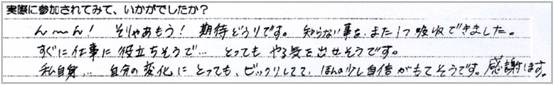 実際に参加されてみて、いかがでしたか?
ん〜ん! そりゃあもう! 期待どうりです。知らない事を、また1つ吸収できました。
すぐに仕事に役立ちそうで… とってもやる気を出せそうです。
私自身… 自分の変化にとっても、ビックリしてて、ほんの少し自信がもてそうです。感謝します。